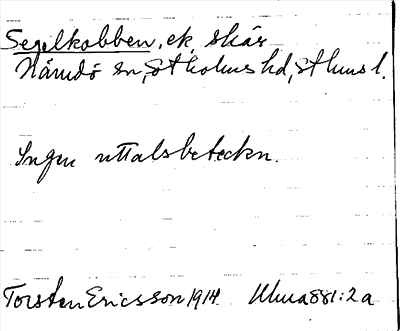 Segelkobben, ek. skär
Nämdö sn, Stholms hd, Sthms l.
Ingen uttalsbeteckn.
Torsten Ericsson 1914. Ulma 881:2a